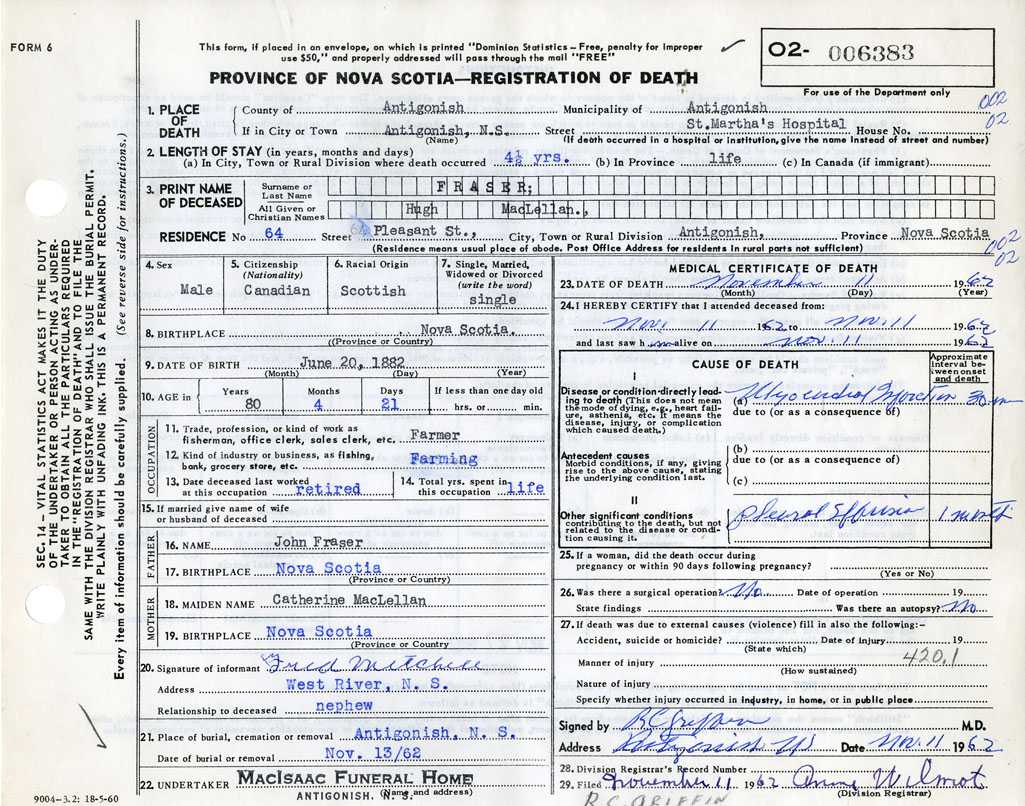 FORM 6
This form, if placed in an envelope, on which is printed "Dominion Statistics – Free, penalty for improper
use $50," and properly addressed will pass through the mail "FREE"
PROVINCE OF NOVA SCOTIA—REGISTRATION OF DEATH
O2- 006383
For use of the Department only
002
02
1. PLACE OF DEATH County of Antigonish Municipality of Antigonish
If in City or Town Antigonish, N.S. Street St.Martha's Hospital House No.
(Name) (If death occurred in a hospital or institution, give the name instead of street and number)
2. LENGTH OF STAY (in years, months and days)
(a) In City, Town or Rural Division where death occurred 4½ yrs. (b) In Province life (c) In Canada (if immigrant)
3. PRINT NAME OF DECEASED Surname or Last Name FRASER;
All Given or Christian Names Hugh MacLellan.,
RESIDENCE No 64 Street Pleasant St., City, Town or Rural Division Antigonish, Province Nova Scotia
(Residence means usual place of abode. Post Office Address for residents in rural parts not sufficient)
002
02
4. Sex Male
5. Citizenship (Nationality) Canadian
6. Racial Origin Scottish
7. Single, Married, Widowed or Divorced (write the word) single
8. BIRTHPLACE Nova Scotia.
((Province or Country)
9. DATE OF BIRTH June 20, 1882
(Month) (Day) (Year)
10. AGE in Years 80 Months 4 Days 21 If less than one day old hrs. or min.
OCCUPATION
11. Trade, profession, or kind of work as
fisherman, office clerk, sales clerk, etc. Farmer
12. Kind of industry or business, as fishing,
bank, grocery store, etc. Farming
13. Date deceased last worked
at this occupation retired
14. Total yrs. spent in
this occupation life
15. If married give name of wife
or husband of deceased
FATHER
16. NAME John Fraser
17. BIRTHPLACE Nova Scotia
(Province or Country)
MOTHER
18. MAIDEN NAME Catherine MacLellan
19. BIRTHPLACE Nova Scotia
(Province or Country
20. Signature of informant Fred Mitchell
Address West River, N. S.
Relationship to deceased nephew
21. Place of burial, cremation or removal Antigonish, N. S.
Date of burial or removal Nov. 13/62
22. UNDERTAKER MACISAAC FUNERAL HOME
ANTIGONISH, N. S.
(Name and address)
9004-3.2: 18-5-60
MEDICAL CERTIFICATE OF DEATH
23. DATE OF DEATH November 11 1962
(Month) (Day) (Year)
24. I HEREBY CERTIFY that I attended deceased from:
Nov. 11 1962 to Nov. 11 1962
and last saw him alive on Nov. 11 1962
CAUSE OF DEATH
Approximate interval between onset and death
I
Disease or condition directly leading to death (This does not mean the mode of dying, e.g., heart failure, asthenia, etc. It means the disease, injury, or complication which caused death.)
(a) Myocardial Infarction 30 m
due to (or as a consequence of)
Antecedent causes
Morbid conditions, if any, giving rise to the above cause, stating the underlying condition last.
(b)
due to (or as a consequence of)
(c)
II
Other significant conditions
contributing to the death, but not related to the disease or condition causing it.
Pleural Effusion 1 month
25. If a woman, did the death occur during
pregnancy or within 90 days following pregnancy?
(Yes or No)
26. Was there a surgical operation? No Date of operation 19
State findings Was there an autopsy? No
27. If death was due to external causes (violence) fill in also the following:-
Accident, suicide or homicide? Date of injury 19
(State which)
420.1
Manner of injury
(How sustained)
Nature of injury
Specify whether injury occurred in industry, in home, or in public place
Signed by RC Griffin M.D.
Address Antigonish Date Nov. 11 1962
28. Division Registrar's Record Number
29. Filed November 11 1962 Anne Wilmot
(Division Registrar)
R.C. GRIFFIN
SEC. 14 – VITAL STATISTICS ACT MAKES IT THE DUTY
OF THE UNDERTAKER OR PERSON ACTING AS UNDER-
TAKER TO OBTAIN ALL THE PARTICULARS REQUIRED
IN THE "REGISTRATION OF DEATH" AND TO FILE THE
SAME WITH THE DIVISION REGISTRAR WHO SHALL ISSUE THE BURIAL PERMIT.
WRITE PLAINLY WITH UNFADING INK. THIS IS A PERMANENT RECORD.
Every item of information should be carefully supplied. (See reverse side for instructions.)